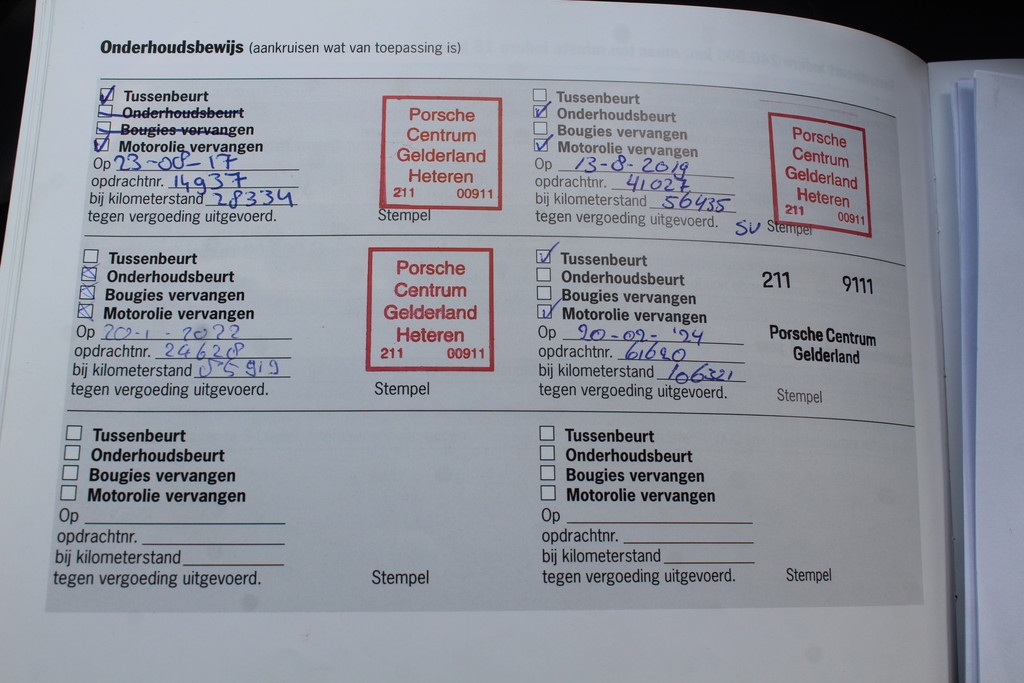 Onderhoudsbewijs (aankruisen wat van toepassing is)
Tussenbeurt
Onderhoudsbeurt
Bougies vervangen
Motorolie vervangen
Op 23-08-17
opdrachtnr. 14937
bij kilometerstand 28334
tegen vergoeding uitgevoerd.
Stempel
Porsche
Centrum
Gelderland
Heteren
211 00911
Tussenbeurt
Onderhoudsbeurt
Bougies vervangen
Motorolie vervangen
Op 13-8-2019
opdrachtnr. 41027
bij kilometerstand 56435
tegen vergoeding uitgevoerd.
SU Stempel
Porsche
Centrum
Gelderland
Heteren
211 00911
Tussenbeurt
Onderhoudsbeurt
Bougies vervangen
Motorolie vervangen
Op 20-1-2022
opdrachtnr. 24620
bij kilometerstand
tegen vergoeding uitgevoerd.
Stempel
Porsche
Centrum
Gelderland
Heteren
211 00911
Tussenbeurt
Onderhoudsbeurt
Bougies vervangen
Motorolie vervangen
Op 20-02-'24
opdrachtnr. 61620
bij kilometerstand 106321
tegen vergoeding uitgevoerd.
211 9111
Porsche Centrum
Gelderland
Stempel
Tussenbeurt
Onderhoudsbeurt
Bougies vervangen
Motorolie vervangen
Op
opdrachtnr.
bij kilometerstand
tegen vergoeding uitgevoerd.
Stempel
Tussenbeurt
Onderhoudsbeurt
Bougies vervangen
Motorolie vervangen
Op
opdrachtnr.
bij kilometerstand
tegen vergoeding uitgevoerd.
Stempel